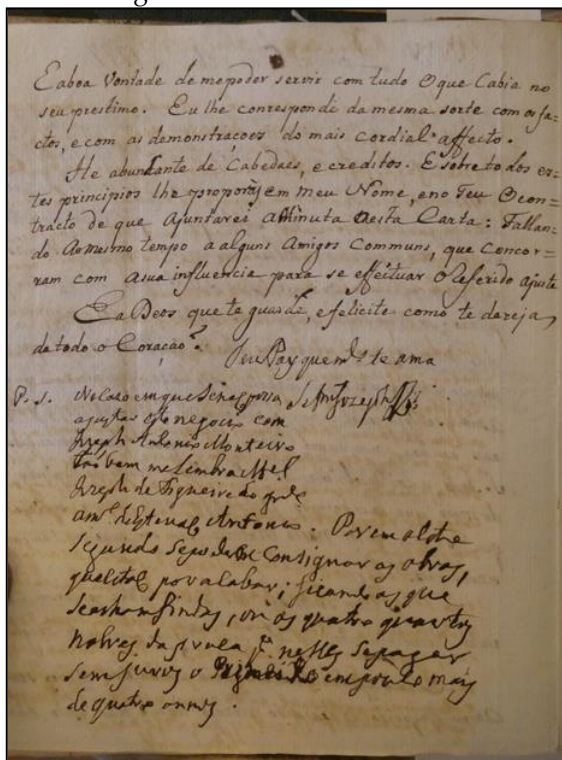 E aboa Vontade de mepoder servir com tudo Oque Cabia no
seu prestimo. Eu lhe correspondi da mesma sorte com os fa=
ctos, e com as demonstraçoez do mais cordial affecto.
He abundante de Cabedaes, e creditos. E sobre todos es=
tes principios lhe proporâs em meu Nome, e no Teu O con=
tracto de que Ajuntarei a Minuta a esta Carta: Fallan=
do Ao mesmo tempo a alguns Amigos Communs, que concor=
ram com a sua influencia para se effeituar O referido ajuste
E a Deos que te guarde, e felicite como te dezeja,
de todo o Coraçaõ.
Teu Pay que m.to te ama
P. S. No Cazo em que Se naõ possa
ajustar este negocio com
Jozeph Antonio Monteiro
taõbem me Lembra M.el
Jozeph de Figueiredo
am.o de Antonio. Porem a este
segundo Se podem Consignar as obras,
que estaõ por acabar; ficando as que
Se acham findas, os quatro quartos
nobres da p.a nelles Se pagar
Sem juros o em pouco mais
de quatro annos.